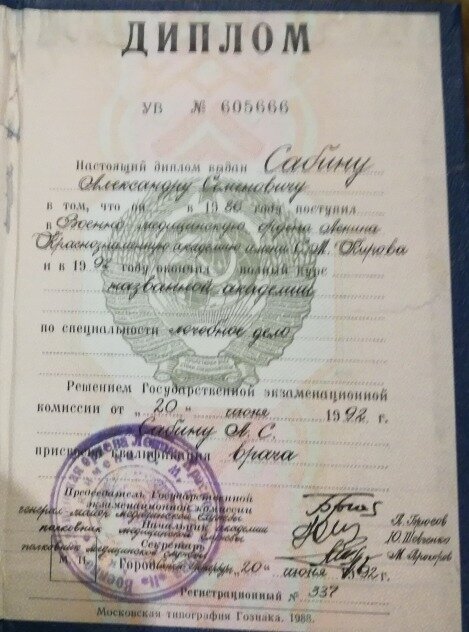 ДИПЛОМ
УВ № 605666
Настоящий диплом выдан Сабину
Александру Семеновичу
в том, что он в 1986 году поступил
в Военно-медицинскую ордена Ленина
Краснознаменную академию имени С.М. Кирова
и в 1992 году окончил полный курс
названной академии
по специальности лечебное дело
Решением Государственной экзаменационной
комиссии от „20" июня 1992 г.
Сабину А.С.
присвоена квалификация врача
Председатель Государственной
экзаменационной комиссии
генерал-майор медицинской службы П. Брюсов
Начальник академии
полковник медицинской службы Ю. Шевченко
Секретарь
полковник медицинской службы М. Прохоров
М. П. Город „20" июня 1992 г.
Регистрационный № 337
Московская типография Гознака. 1988.